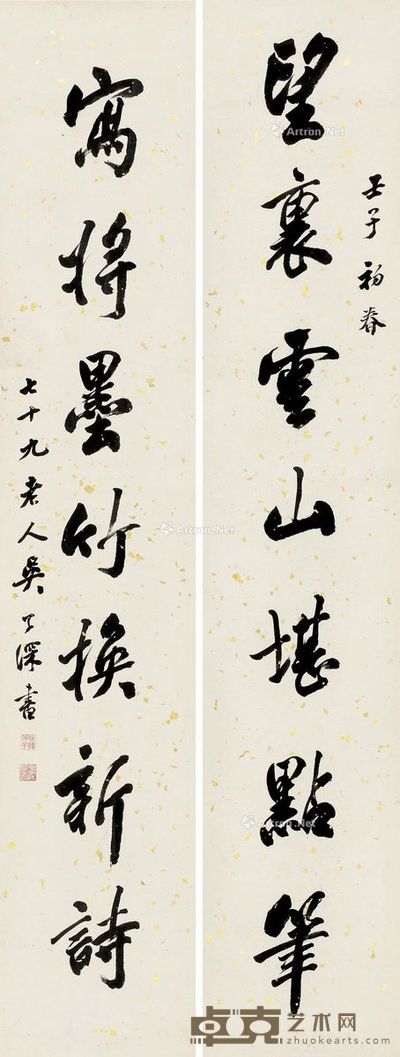 壬子初春
望裏雲山堪點筆
寫將墨竹換新詩
七十九老人吳子深書
Artron.Net
Artron.Net
Artron.Net
Artron.Net
卓克艺术网
zhuokearts.com